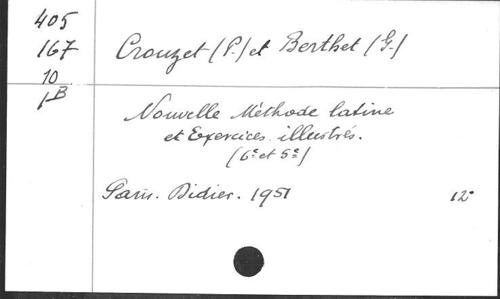 405
167
10
1B
Crouzet (P.) et Berthet (G.)
Nouvelle Méthode latine
et Exercices illustrés.
(6e et 5e)
Paris. Didier. 1951 12°